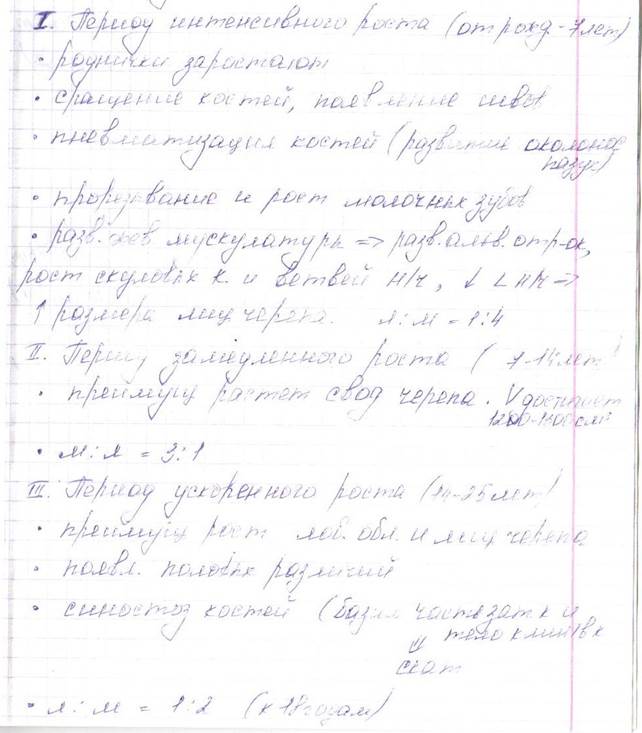 I. Период интенсивного роста (от рожд - 7 лет)
• роднички заростают
• сращение костей, появление швов
• пневматизация костей (развитие околонос
пазух)
• прорезывание и рост молочных зубов
• разв. жев мускулатуры => разв. альв. отр-ов,
рост скуловых к. и ветвей н/ч, ↓ ∠ н/ч =>
↑ размера лиц черепа. л : м = 1:4
II. Период замедленного роста ( 7-14 лет )
• преимущ растет свод черепа. V достигает
1200-1300 см³
• м : л = 3:1
III. Период ускоренного роста (14-25 лет)
• преимущ рост лоб. обл. и лиц черепа
• появл. половых различий
• синостоз костей (базил часть зат к и
тело клинов к
⇓
скат
• л : м = 1:2 (к 18 годам)